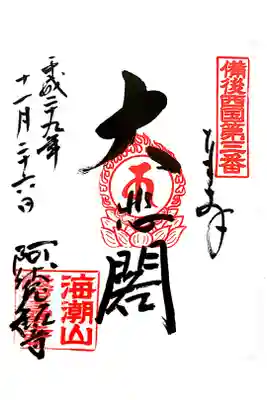 備後西国第三番
大悲閣
海潮山
阿伏兎観音
平成二十九年
十一月二十六日